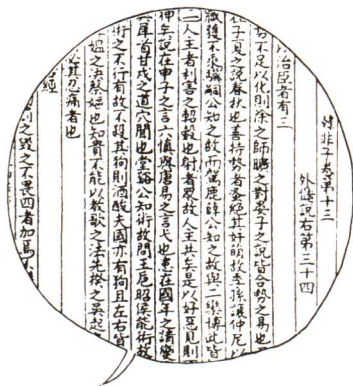 韓非子卷第十三
外儲說右第三十四
以治臣者有三
不足以化則除之師曠之對晏子之說皆合勢之易也
子夏之說春秋也善持勢者蚤絕其奸萌故季孫讓仲尼以
臧獲不乘驥嗣公知之故而駕鹿薛公知之故與二欒博此皆
二人主者利害之軺轂也射者眾故人主共矣是以好惡見則
神矣說在申子之言六慎與唐易之言弋也患在國羊之請變
犀首甘茂之道穴聞也堂谿公知術故問玉卮昭侯能術故
術之不行有故不殺其狗則酒酸夫國亦有狗且左右皆
媼之決蔡嫗也知貴不能以教歌之法先揆之吳起
必其忍痛者也
經
罰之毀之不畏四者加焉不